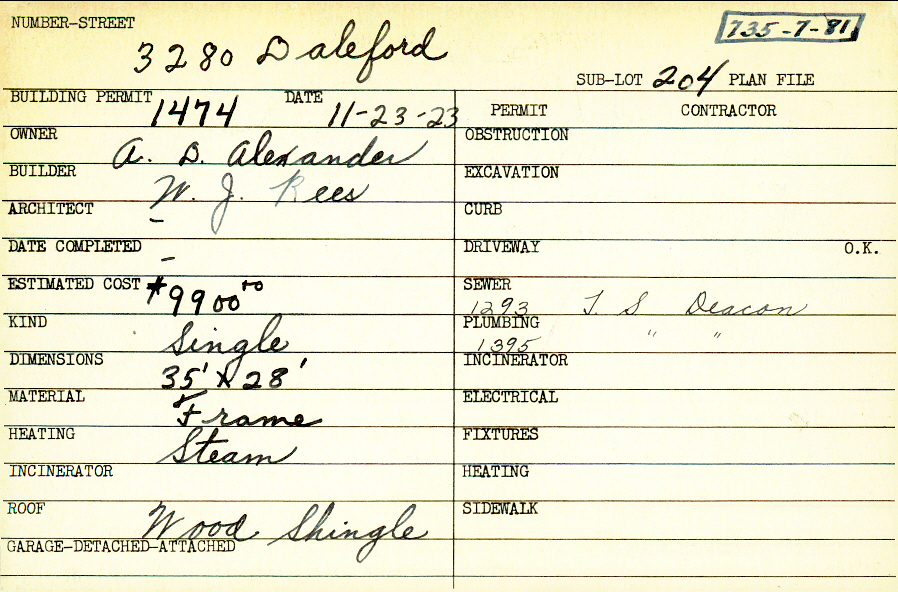 NUMBER-STREET 3280 Daleford 735-7-81
SUB-LOT 204 PLAN FILE
BUILDING PERMIT 1474 DATE 11-23-23
OWNER A. D. Alexander
BUILDER W. J. Rees
ARCHITECT –
DATE COMPLETED –
ESTIMATED COST $9900.00
KIND Single
DIMENSIONS 35' X 28'
MATERIAL Frame
HEATING Steam
INCINERATOR
ROOF Wood Shingle
GARAGE-DETACHED-ATTACHED
PERMIT CONTRACTOR
OBSTRUCTION
EXCAVATION
CURB
DRIVEWAY O.K.
SEWER 1293 T. S Deacon
PLUMBING 1395 " "
INCINERATOR
ELECTRICAL
FIXTURES
HEATING
SIDEWALK